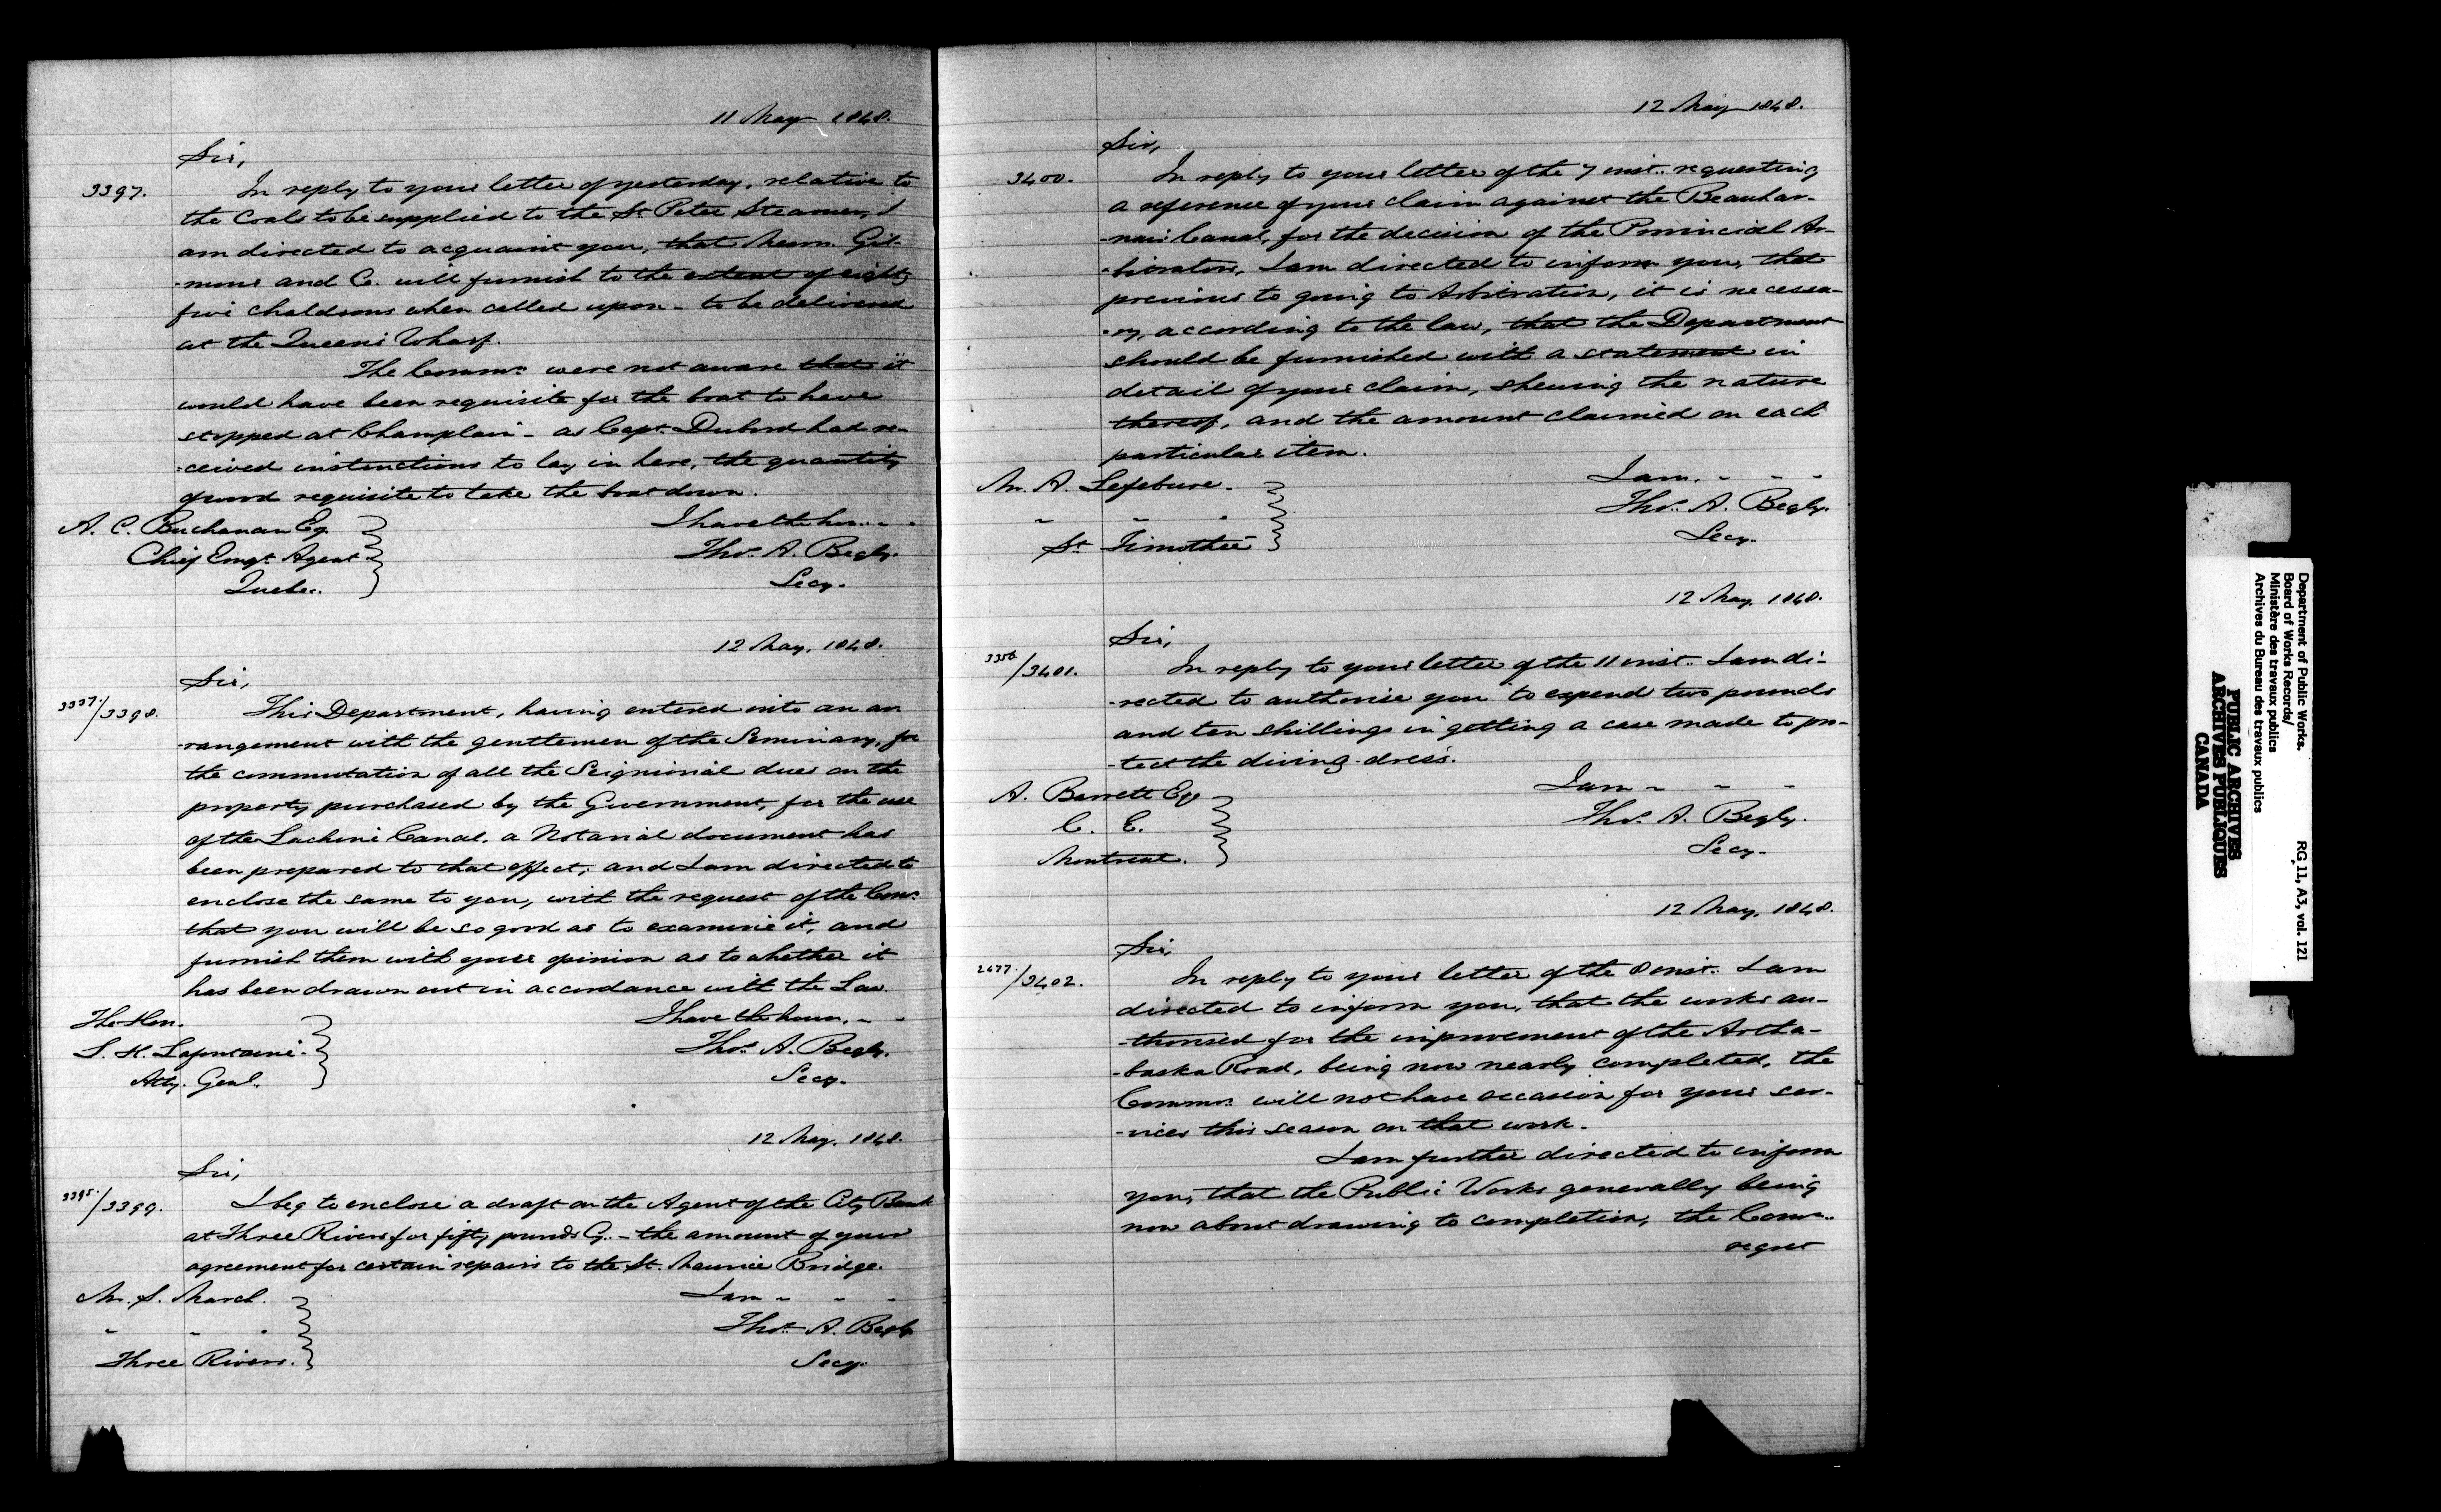 11 May 1848.
Sir,
3397. In reply to your letter of yesterday, relative to
the Coals to be supplied to the St Peter Steamer, I
am directed to acquaint you, that Messrs. Gil-
-mour and Co. will furnish to the extent of eighty
five chaldrons when called upon - to be delivered
at the Queen's Wharf.
The Commrs were not aware that it
would have been requisite for the boat to have
stopped at Champlain - as Capt. Dubord had re-
-ceived instructions to lay in here, the quantity
of wood requisite to take the boat down.
A. C. Buchanan Esq. I have the hon. - -
Chief Emgt. Agent Thos. A. Begly.
Quebec. Secy.
12 May, 1848.
Sir,
3337./3398. This Department, having entered into an ar
-rangement with the gentlemen of the Seminary, for
the commutation of all the Seignioral dues on the
property purchased by the Government, for the use
of the Lachine Canal, a Notarial document has
been prepared to that effect; and I am directed to
enclose the same to you, with the request of the Comrs
that you will be so good as to examine it, and
furnish them with your opinion as to whether it
has been drawn out in accordance with the Law.
The Hon. I have the honor, - -
L. H. Lafontaine. Thos. A. Begly.
Atty. Genl. Secy.
12 May, 1848.
Sir,
3395./3399. I beg to enclose a draft on the Agent of the City Bank
at Three Rivers for fifty pounds Cy. - the amount of your
agreement for certain repairs to the St. Maurice Bridge.
Mr. S. March. I am - - -
" " " Thos. A. Begly
Three Rivers. Secy.
12 May 1848.
Sir,
3400. In reply to your letter of the 7 inst. requesting
a reference of your claim against the Beauhar-
-nois Canal, for the decision of the Provincial Ar-
-bitrators, I am directed to inform you, that
previous to going to Arbitration, it is necessa-
-ry, according to the law, that the Department
should be furnished with a statement in
detail of your claim, shewing the nature
thereof, and the amount claimed on each
particular item.
Mr. A. Lefebvre. I am. - - -
" " " Thos. A. Begly.
St. Timothée Secy.
12 May, 1848.
Sir,
/3401. In reply to your letter of the 11 inst. I am di-
-rected to authorise you to expend two pounds
and ten shillings in getting a case made to pro-
-tect the diving-dress.
A. Barrett Esq I am - - -
C. E. Thos. A. Begly.
Montreal. Secy.
12 May, 1848.
Sir,
2477./3402. In reply to your letter of the 8 inst. I am
directed to inform you, that the works au-
-thorised for the improvement of the Artha-
-baska Road, being now nearly completed, the
Commrs. will not have occasion for your ser-
-vices this season on that work.
I am further directed to inform
you, that the Public Works generally being
now about drawing to completion, the Comrs.
regret
Department of Public Works.
Board of Works Records/
Ministère des travaux publics
Archives du Bureau des travaux publics
RG 11, A3, vol. 121
PUBLIC ARCHIVES
ARCHIVES PUBLIQUES
CANADA